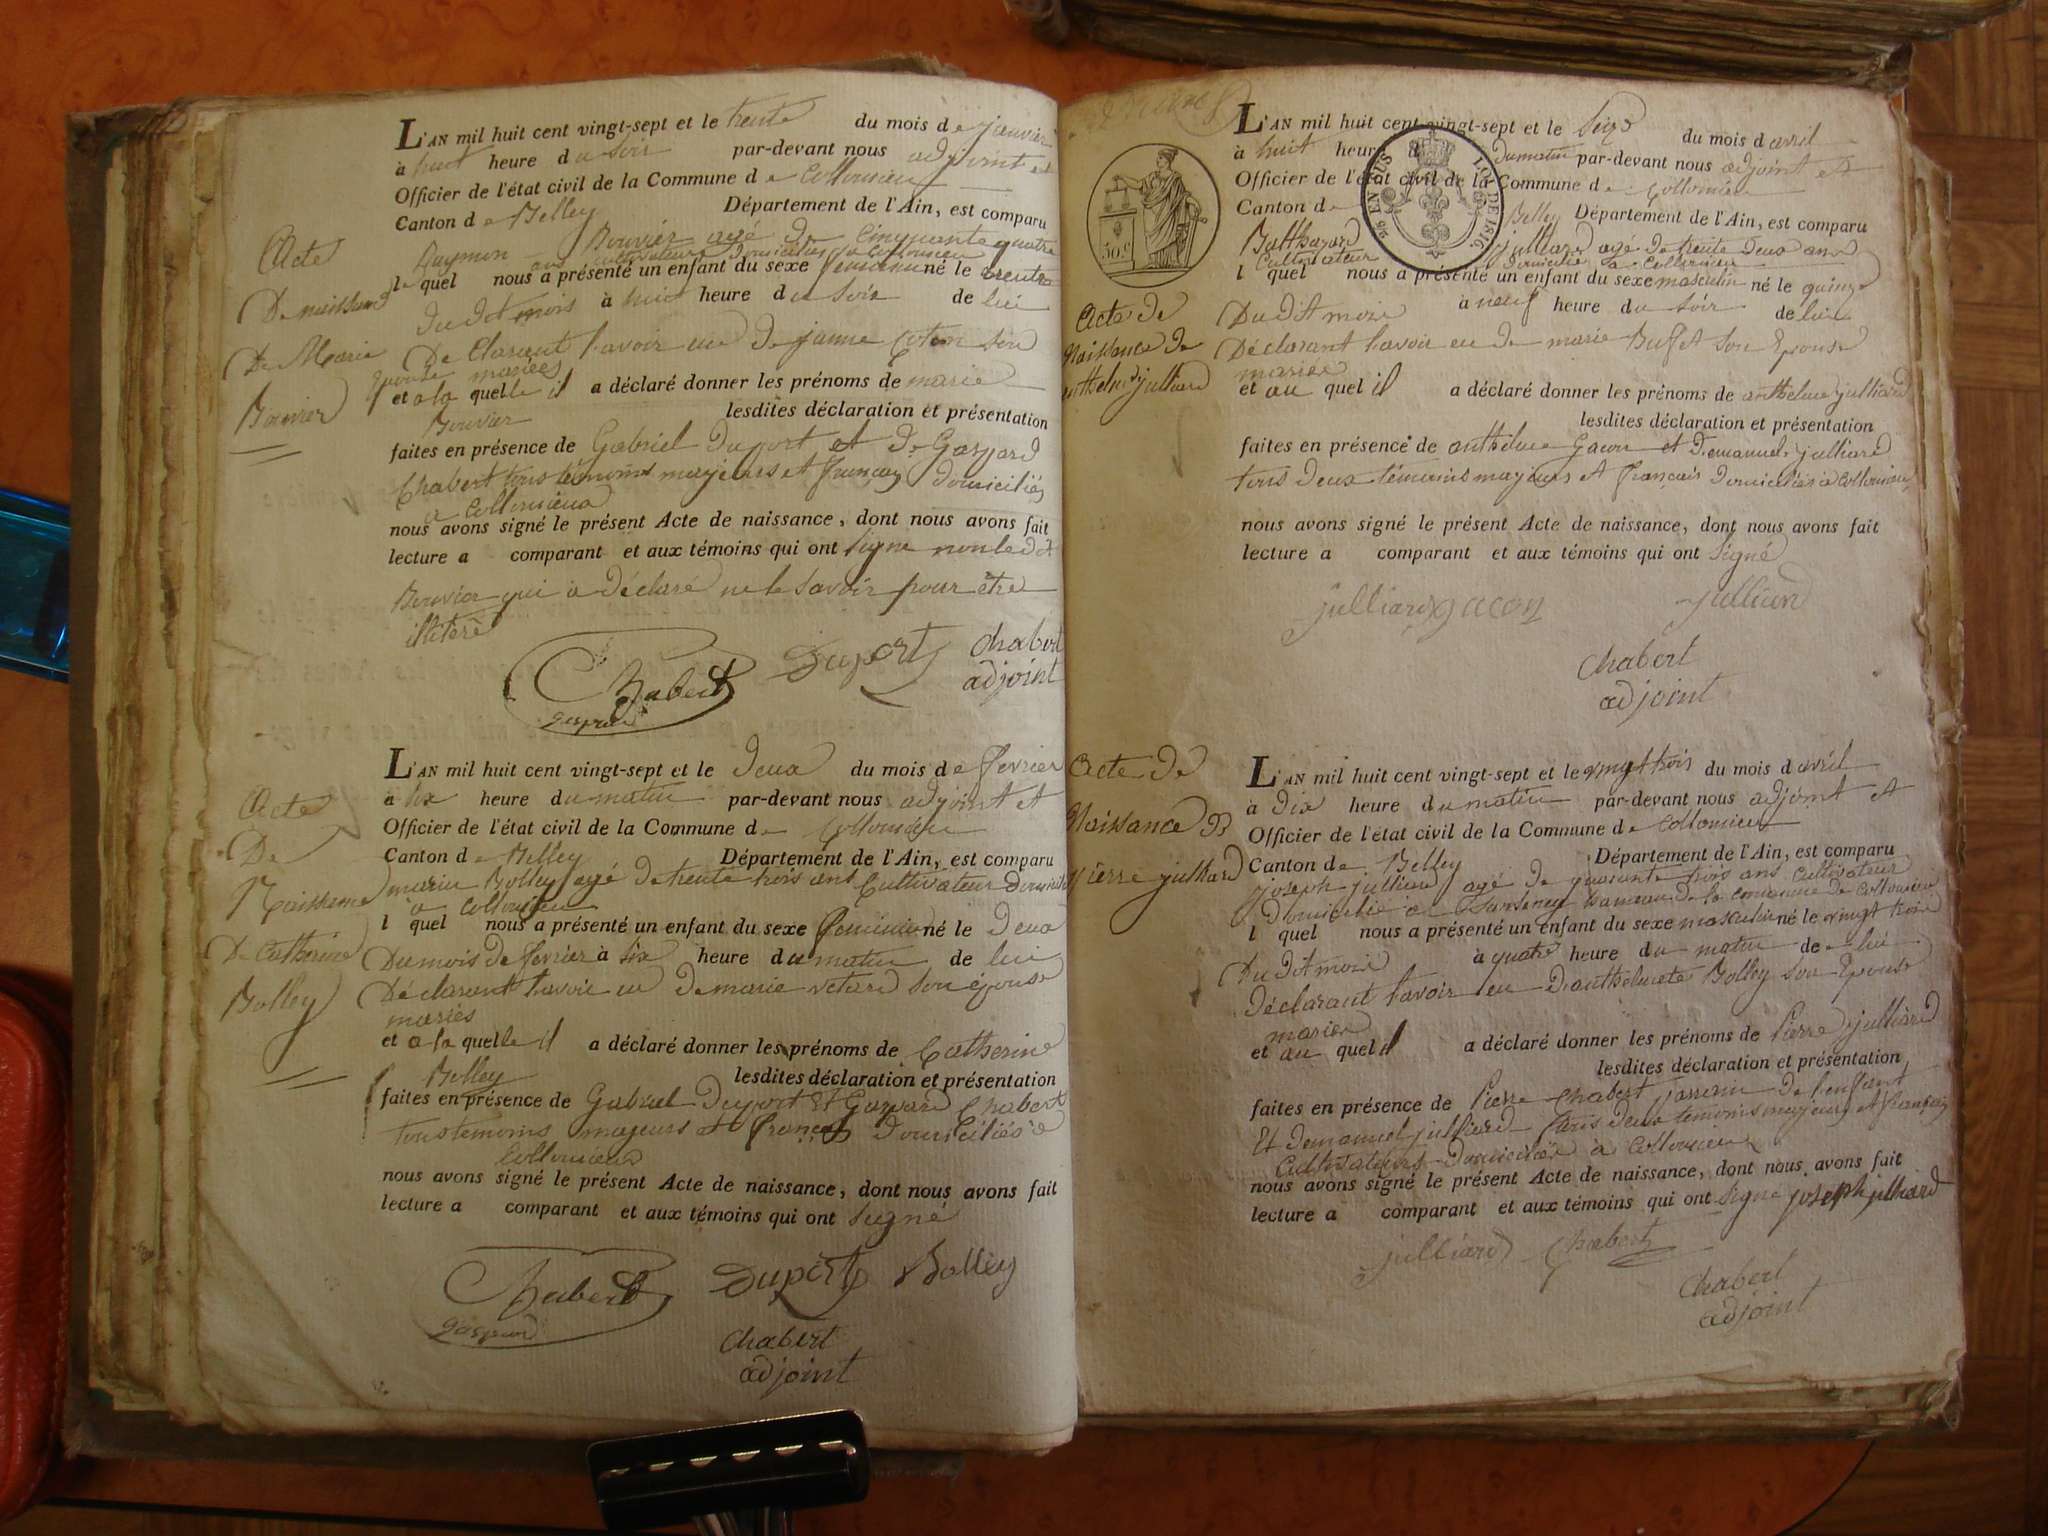 L'AN mil huit cent vingt-sept et le trente du mois de janvier
à huit heure du soir par-devant nous adjoint et
Officier de l'état civil de la Commune de Collomieu
Canton de Belley Département de l'Ain, est comparu
Raymon Bouvier agé de cinquante quatre
ans cultivateur domicilié à Collomieu
le quel nous a présenté un enfant du sexe feminin né le trente
du dit mois à huit heure du soir de lui
Declarant l'avoir eu de janne son
Epouse mariés
et a la quelle il a déclaré donner les prénoms de marie
Bouvier lesdites déclaration et présentation
faites en présence de Gabriel Duport et de Gaspard
Chabert tous témoins majeurs et francais domiciliés
a Collomieux
nous avons signé le présent Acte de naissance, dont nous avons fait
lecture a comparant et aux témoins qui ont signe non ledit
Bouvier qui a déclaré ne le savoir pour être
illitéré
Chabert Duport Chabert
gaspard adjoint
Acte
De naissance
De Marie
Bouvier
L'AN mil huit cent vingt-sept et le deux du mois de fevrier
à dix heure du matin par-devant nous adjoint et
Officier de l'état civil de la Commune de Collomieu
Canton de Belley Département de l'Ain, est comparu
marin Bolley agé de trente trois ans Cultivateur domicilié
a Collomieu
l quel nous a présenté un enfant du sexe feminin né le deux
Du mois de fevrier à six heure du matin de lui
Déclarant l'avoir eu de marie son épouse
mariés
et a la quelle il a déclaré donner les prénoms de Catherine
Bolley lesdites déclaration et présentation
faites en présence de Gabriel Duport et Gaspard Chabert
tous temoins majeurs et français domiciliés a
Collomieux
nous avons signé le présent Acte de naissance, dont nous avons fait
lecture a comparant et aux témoins qui ont signé
Chabert Duport Bolley
gaspard
Chabert
adjoint
Acte
De
Naissance
De Catherine
Bolley
L'AN mil huit cent vingt-sept et le seize du mois d avril
à huit heure du matin par-devant nous adjoint et
Officier de l'état civil de la Commune de Collomieu
Canton de Belley Département de l'Ain, est comparu
Balthazard julliard agé de trente deux ans
Cultivateur domicilié à Collomieu
l quel nous a présenté un enfant du sexe masculin né le quinze
Du dit mois à neuf heure du soir de lui
Déclarant l'avoir eu de marie Buffet son Epouse
mariés
et au quel il a déclaré donner les prénoms de anthelme julliard
lesdites déclaration et présentation
faites en présence de anthelme Gacon et D'emanuel julliard
tous deux témoins majeurs et français domiciliés à Collomieu
nous avons signé le présent Acte de naissance, dont nous avons fait
lecture a comparant et aux témoins qui ont signé
julliard gacon julliard
Chabert
adjoint
50 c
EN SUS
LOI DE 1816
Acte de
Naissance de
anthelme julliard
L'AN mil huit cent vingt-sept et le vingt trois du mois d avril
à dix heure du matin par-devant nous adjoint et
Officier de l'état civil de la Commune de Collomieu
Canton de Belley Département de l'Ain, est comparu
joseph julliard agé de quarante trois ans cultivateur
Domicilié a hameau de la commune de Collomieu
l quel nous a présenté un enfant du sexe masculin né le vingt trois
Du dit mois à quatre heure du matin de lui
Déclarant l'avoir eu D'anthelmete Bolley son Epouse
mariés
et au quel il a déclaré donner les prénoms de Pierre julliard
lesdites déclaration et présentation
faites en présence de Pierre Chabert parrain de l'enfant
Et D'emanuel julliard tous deux temoins majeurs et français
Cultivateurs domiciliés à Collomieu
nous avons signé le présent Acte de naissance, dont nous avons fait
lecture a comparant et aux témoins qui ont signé joseph julliard
julliard Chabert
Chabert
adjoint
Acte de
Naissance D
Pierre julliard